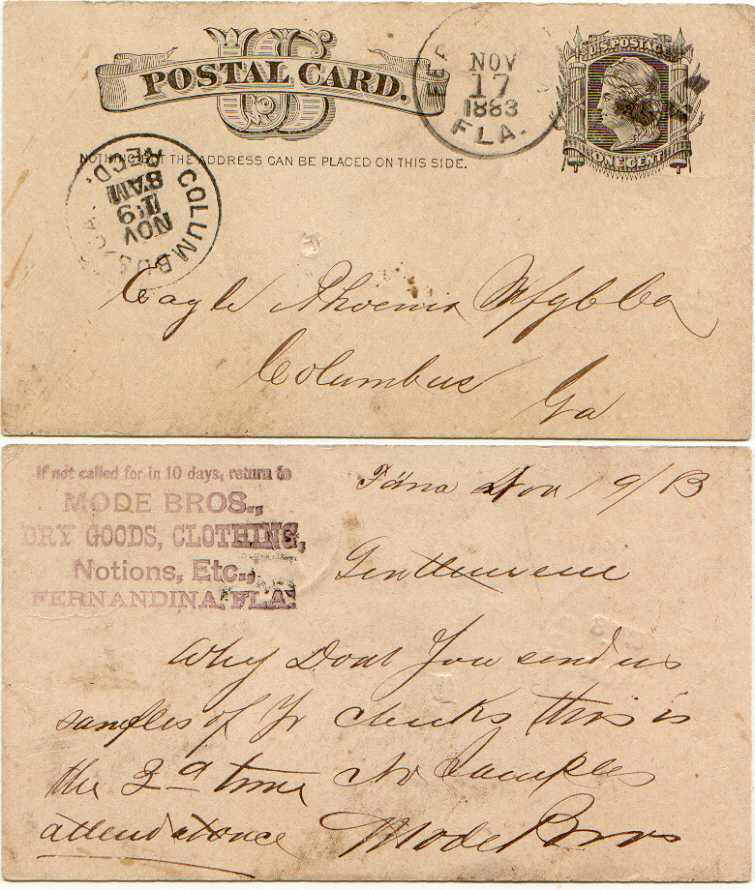 US
POSTAL CARD.
NOTHING BUT THE ADDRESS CAN BE PLACED ON THIS SIDE.
NOV
17
1883
FLA.
U.S. POSTAGE
ONE CENT
COLUMBUS, GA.
NOV
19
8 AM
REC'D.
Eagle Phoenix Mfg Co
Columbus
Ga
If not called for in 10 days, return to
MODE BROS.,
DRY GOODS, CLOTHING,
Notions, Etc.,
FERNANDINA, FLA.
Fdna Nov
Gentlemen
Why Dont You send us
samples of Yr checks this is
the 3d time No Samples
attend at once Mode Bros